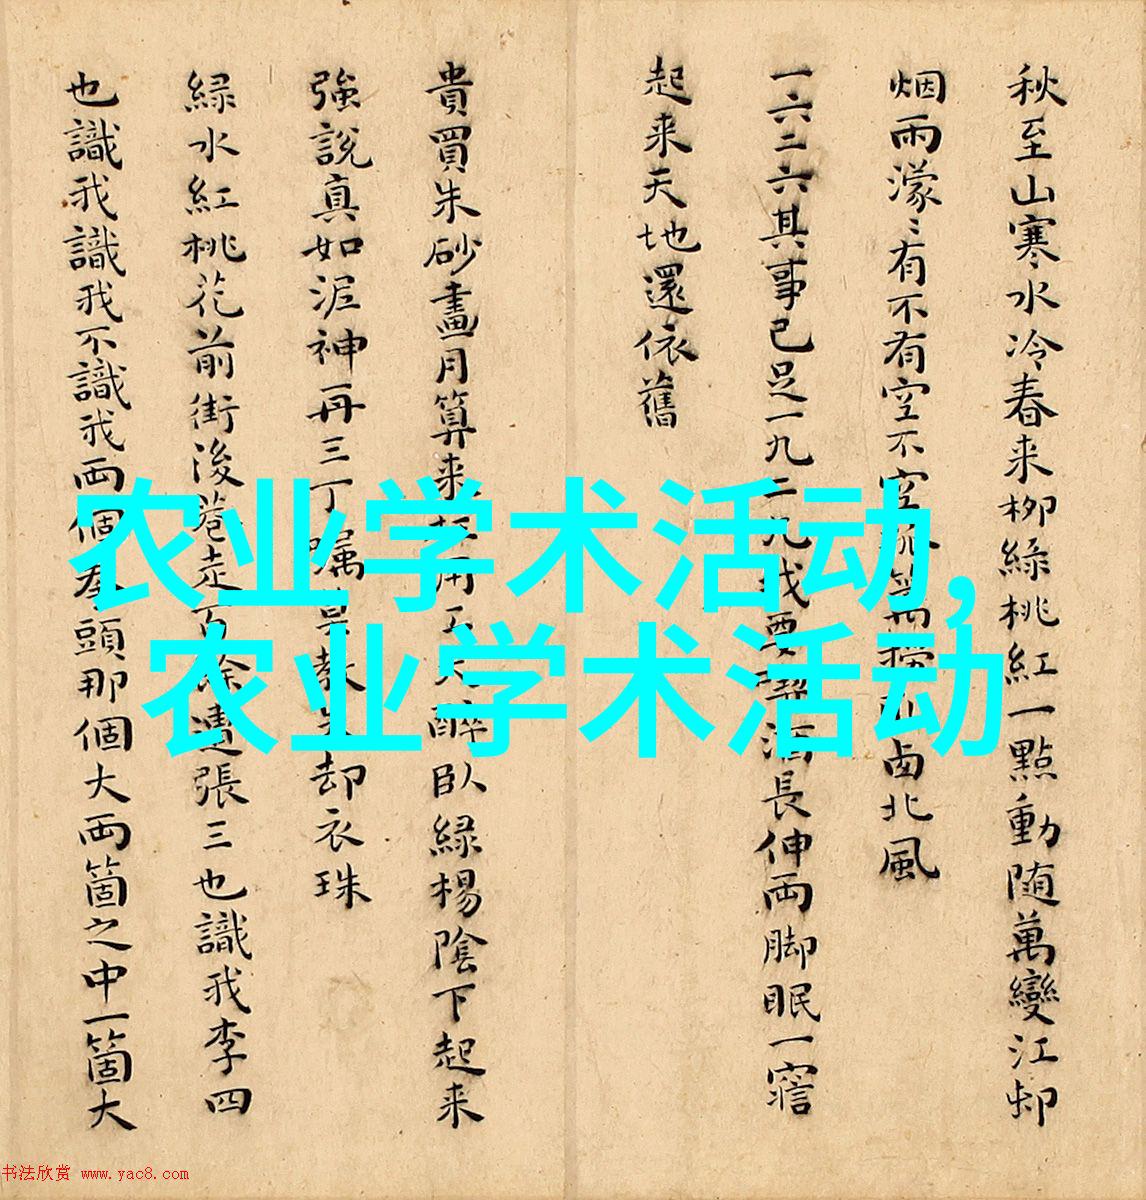 秋至山寒水冷春来柳緑桃紅一點動随萬變江邨
烟雨濛〻有不有空不空
北風
一六二六其事已足一九二九我要
酒長伸両脚眠一寤
起来天地還依舊
貴買朱砂畫月算来
醉臥緑楊陰下起来
強說真如泥神再三丁嘱
却衣珠
緑水紅桃花前街後巷走百餘遭張三也識我李四
也識我識我不識我両個拳頭那個大両箇之中一箇大
农业学术活动,
农业学术活动
书法欣赏 www.yac8.com